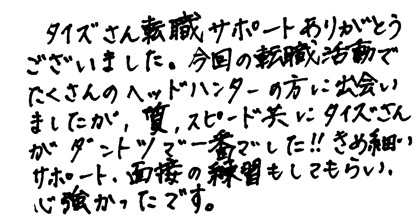 タイズさん転職サポートありがとう
ございました。今回の転職活動で
たくさんのヘッドハンターの方に出会い
ましたが、質、スピード共にタイズさん
がダントツで一番でした!!きめ細い
サポート、面接の練習もしてもらい、
心強かったです。